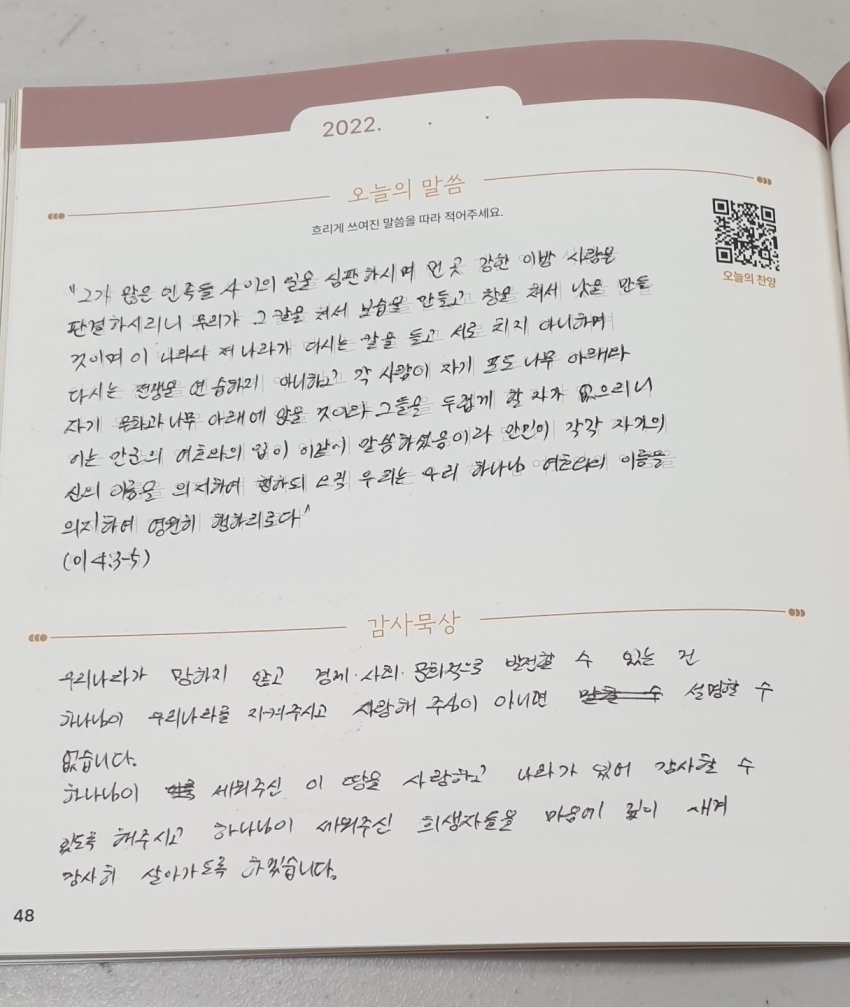 2022. . .
오늘의 말씀
흐리게 쓰여진 말씀을 따라 적어주세요.
오늘의 찬양
"그가 많은 민족들 사이의 일을 심판하시며 먼 곳 강한 이방 사람을
판결하시리니 무리가 그 칼을 쳐서 보습을 만들고 창을 쳐서 낫을 만들
것이며 이 나라와 저 나라가 다시는 칼을 들고 서로 치지 아니하며
다시는 전쟁을 연습하지 아니하고 각 사람이 자기 포도 나무 아래와
자기 무화과나무 아래에 앉을 것이라 그들을 두렵게 할 자가 없으리니
이는 만군의 여호와의 입이 이같이 말씀하셨음이라 만민이 각각 자기의
신의 이름을 의지하여 행하되 오직 우리는 우리 하나님 여호와의 이름을
의지하여 영원히 행하리로다"
(미 4:3-5)
감사묵상
우리나라가 망하지 않고 경제·사회·문화적으로 발전할 수 있는 건
하나님이 우리나라를 지켜주시고 사랑해 주심이 아니면 설명할 수
없습니다.
하나님이 세워주신 이 땅을 사랑하고 나라가 있어 감사할 수
있도록 해주시고 하나님이 세워주신 희생자들을 마음에 깊이 새겨
감사히 살아가도록 하겠습니다.
48